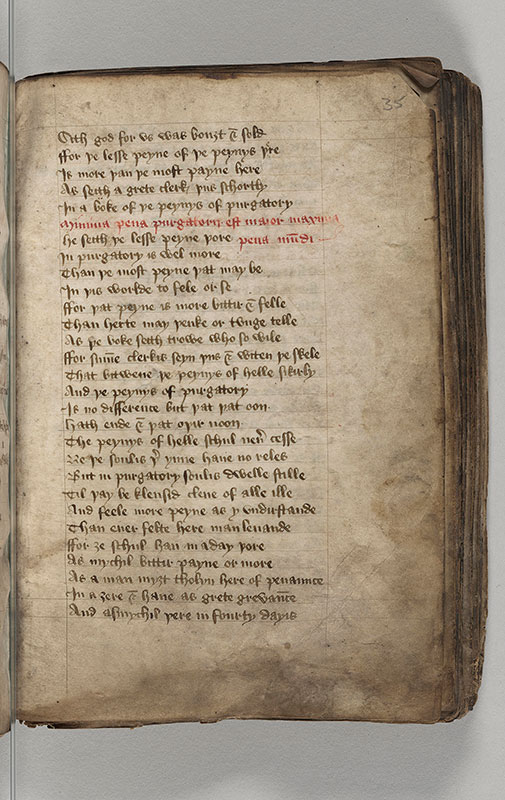 35
Sith god for vs was bouȝt & sold
ffor þe lesse peyne of þe peynys þre
Is more þan þe most payne here
As seith a grete clerk þus schortly
In a boke of þe peynys of purgatory
Minima pena purgatorii est maior maxima
he seith þe lesse peyne þore pena mundi
In purgatory is wel more
Than þe most peyne þat may be
In þis worlde to fele or se
ffor þat peyne is more bittir & felle
Than herte may þenke or tunge telle
As þe boke seith trowe who so wile
ffor sume clerkis seyn þus & witen þe skele
That bitwene þe peynys of helle sikirly
And þe peynys of purgatory
Is no difference but þat þat oon
hath ende & þat oþir noon
The peynys of helle schul neuer cesse
Ne þe soulis þer ynne haue no reles
But in purgatory soulis dwelle stille
Til þay be klensid clene of alle ille
And feele more peyne as y vndirstande
Than euer felte here man leuande
ffor ȝe schul han in a day þore
As mychil bittir payne or more
As a man myȝt tholyn here of penaunce
In a ȝere & haue as grete grevance
And as mychil þere in fourty dayis